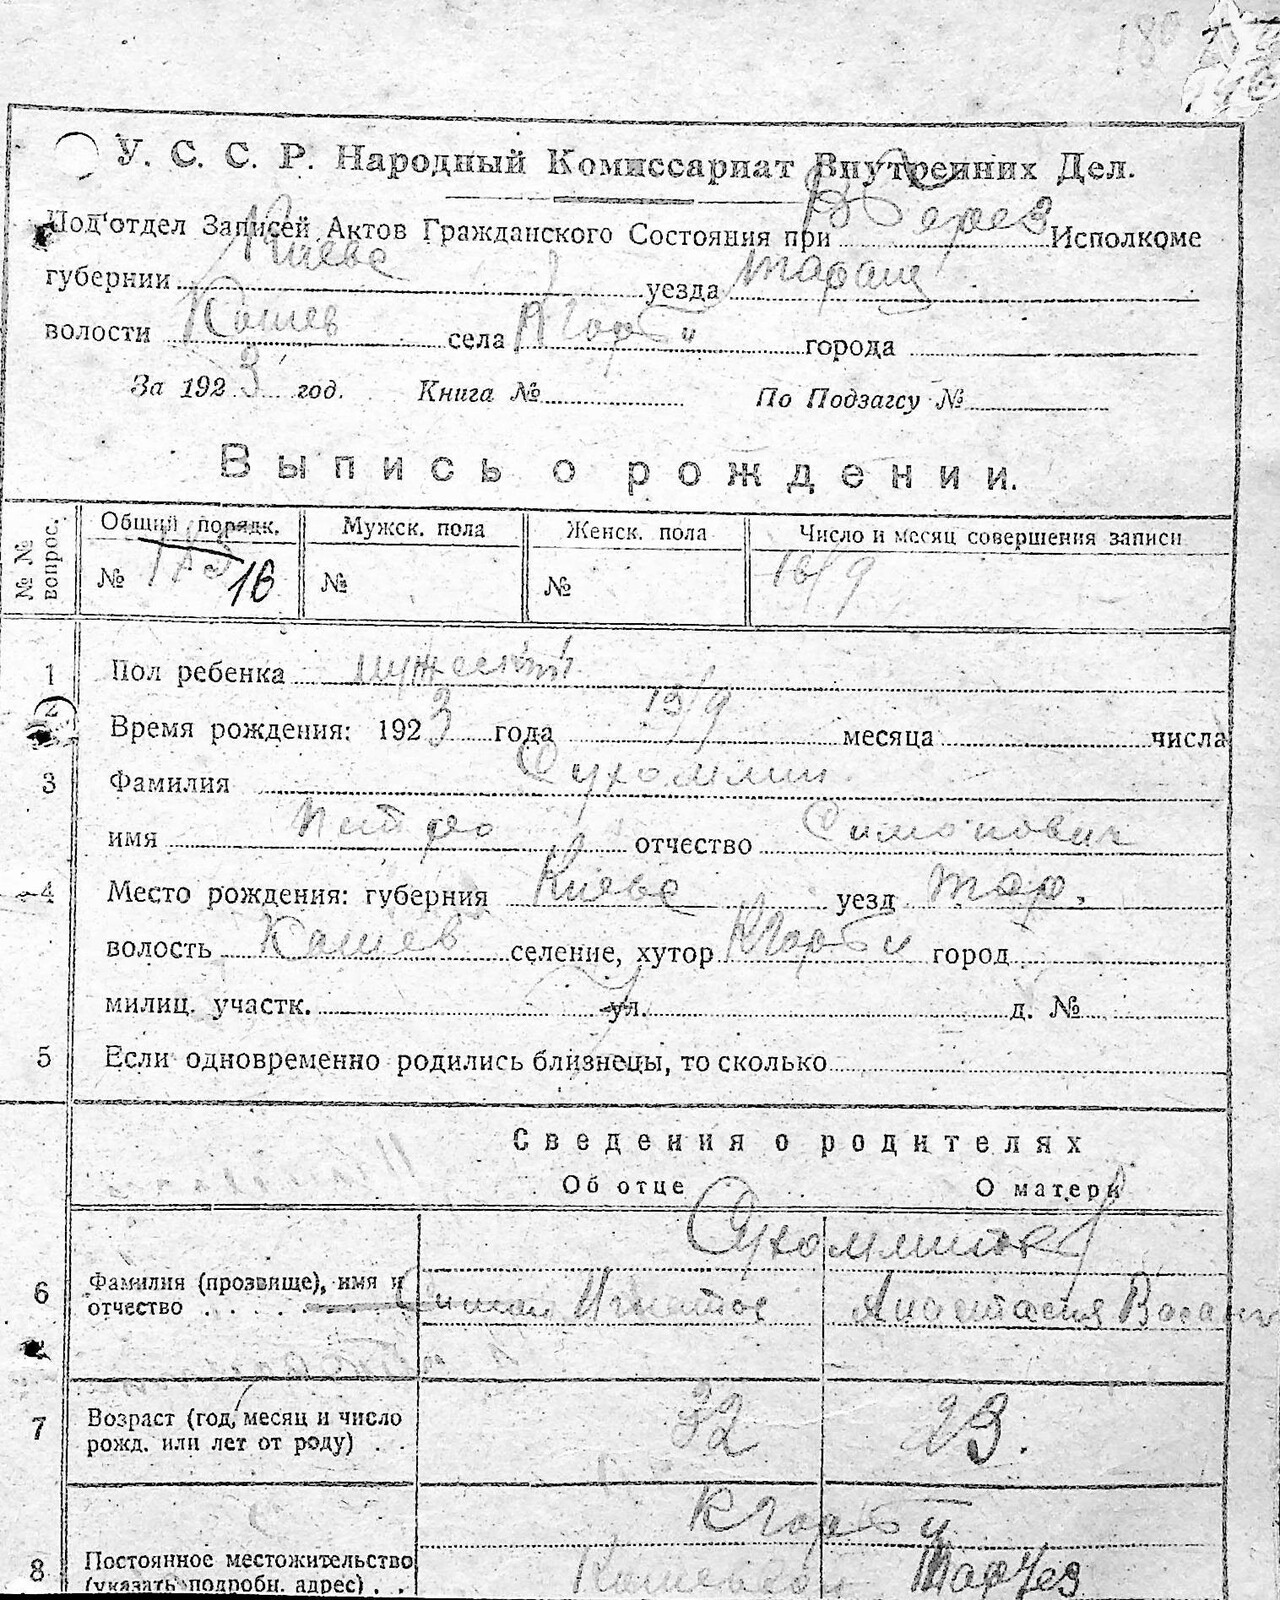 180
У. С. С. Р. Народный Комиссариат Внутренних Дел.
Под'отдел Записей Актов Гражданского Состояния при В Берез Исполкоме
губернии Киевс уезда Таращ
волости Кошев села КГорби города
За 1923 год. Книга № По Подзагсу №
Выпись о рождении.
№ № вопрос. Общий порядк. Мужск. пола Женск. пола Число и месяц совершения записи
№ 16 № № 16/9
1 Пол ребенка мужеский
2 Время рождения: 1923 года 13/9 месяца числа
3 Фамилия Сухомлин
имя Петро отчество Симонович
4 Место рождения: губерния Киевс уезд Тар.
волость Кошев селение, хутор КГорби город
милиц. участк. ул. д. №
5 Если одновременно родились близнецы, то сколько
Сведения о родителях
Об отце О матери
Сухомлинов
6 Фамилия (прозвище), имя и
отчество . . . . Симон Игнатов Анастасия
7 Возраст (год, месяц и число
рожд. или лет от роду) . . 32 23.
КГорби
8 Постоянное местожительство
(указать подробн. адрес) . . Кошевской Тар